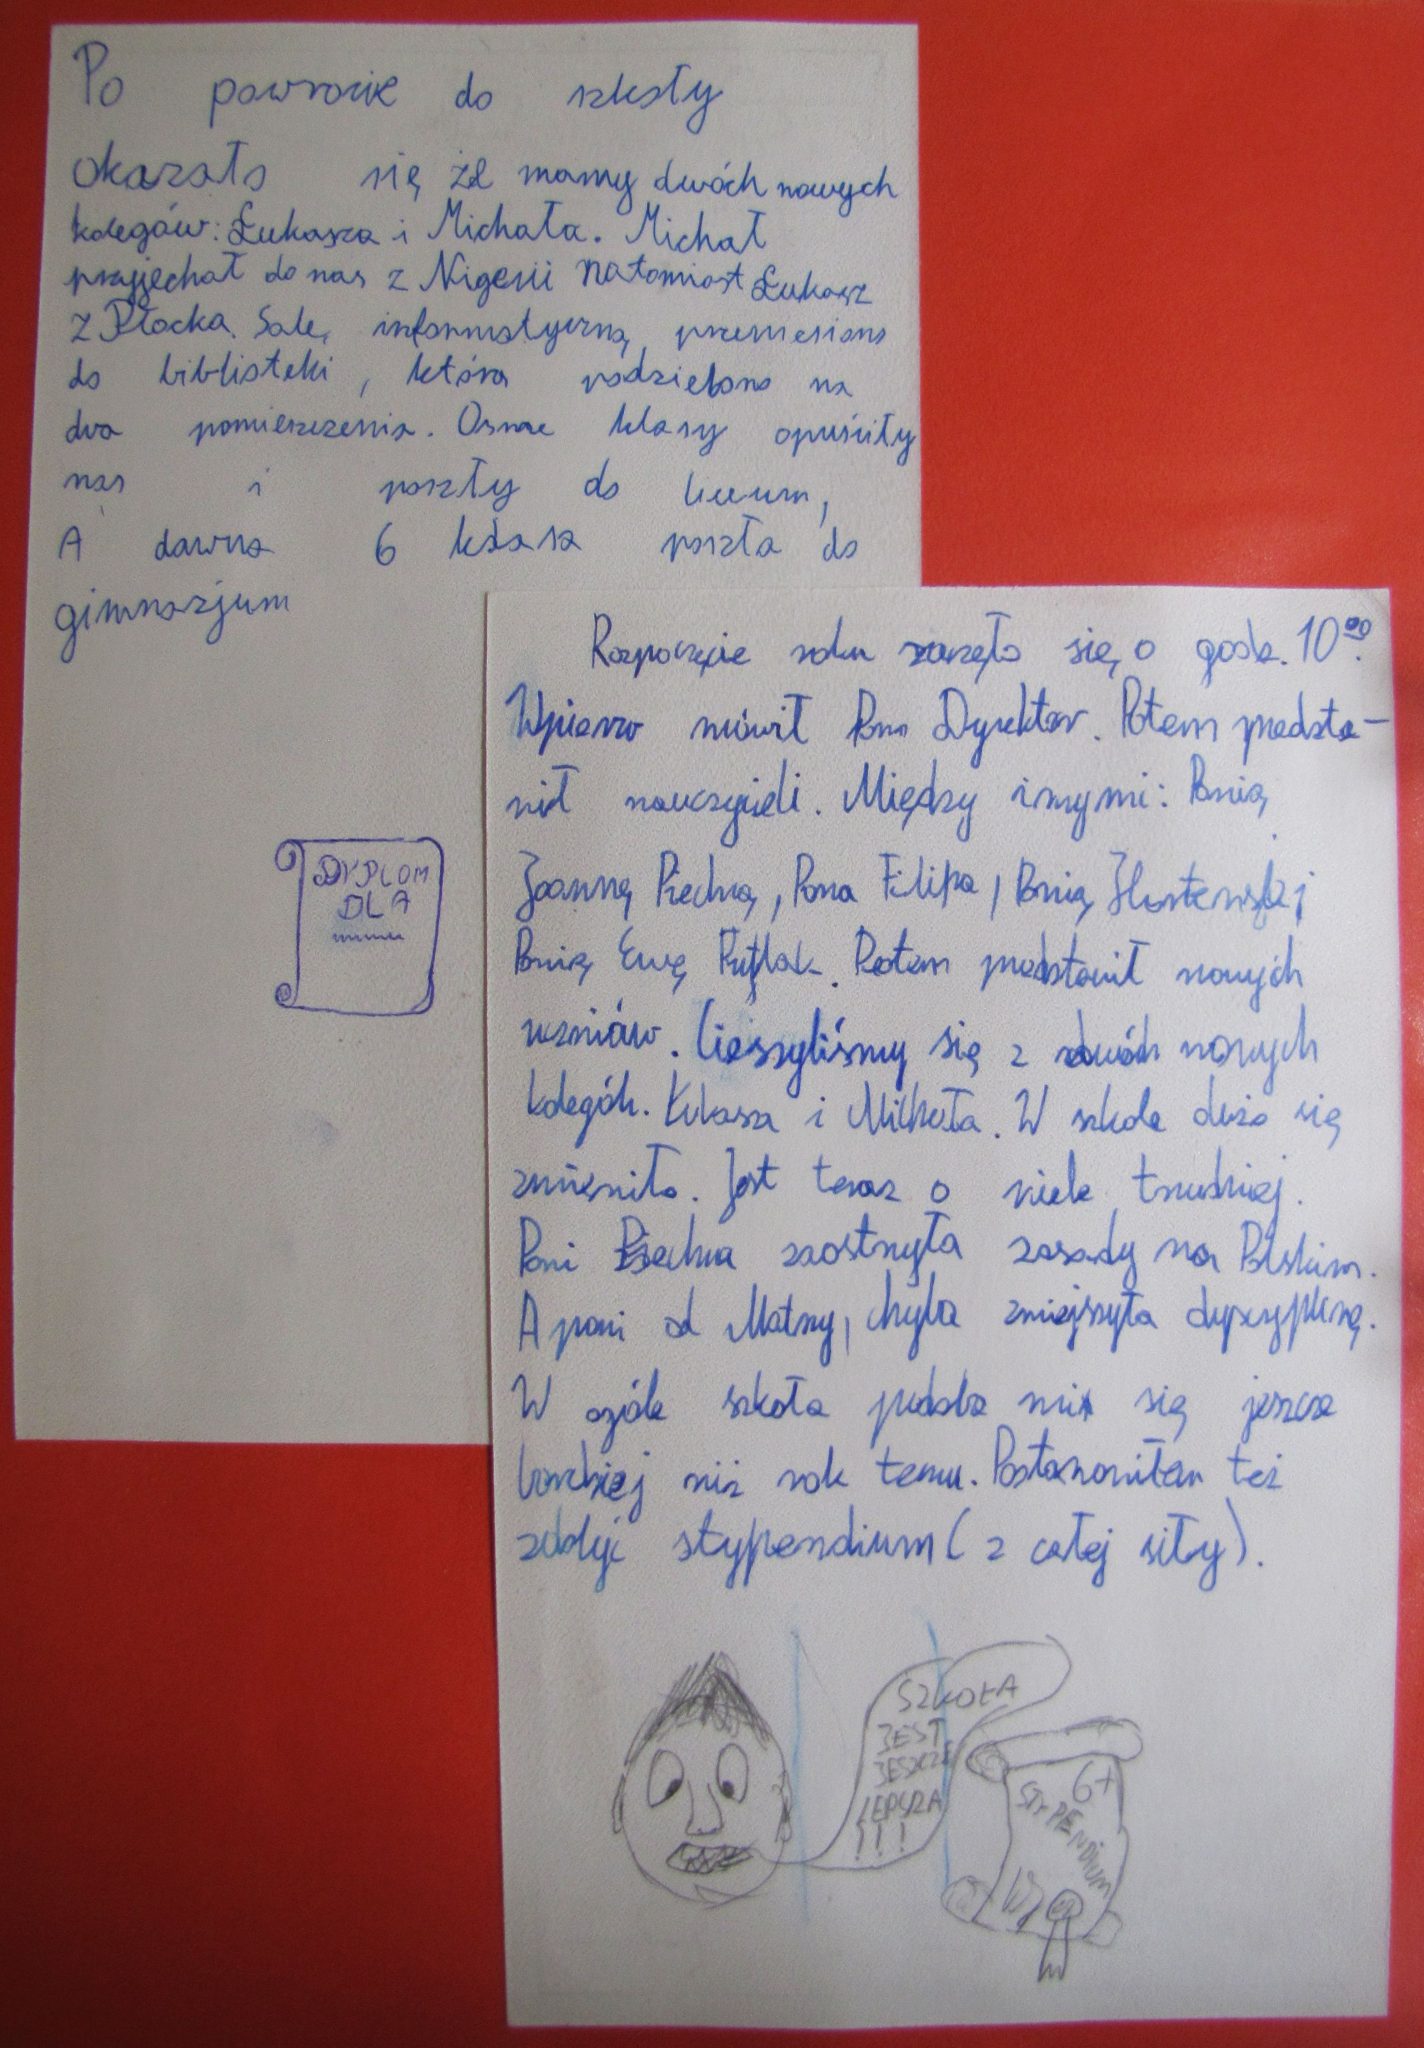 Po powrocie do szkoły
okazało się że mamy dwóch nowych
kolegów: Łukasza i Michała. Michał
przyjechał do nas z Nigerii natomiast Łukasz
z Płocka. Salę informatyczną przeniesiono
do biblioteki, którą podzielono na
dwa pomieszczenia. Ósme klasy opuściły
nas i poszły do liceum,
A dawna 6 klasa poszła do
gimnazjum
DYPLOM
DLA
Rozpoczęcie roku zaczęło się o godz. 10⁰⁰.
Wpierw mówił Pan Dyrektor. Potem przedsta-
wił nauczycieli. Między innymi: Panią
Joannę Piechną, Pana Filipa, Panią
Panią Ewę. Potem przedstawił nowych
uczniów. Cieszyliśmy się z dwóch nowych
kolegóh. Łukasza i Michała. W szkole dużo się
zmieniło. Jest teraz o wiele trudniej.
Pani Piechna zaostrzyła zasady na Polskim.
A pani od Matmy, chyba zmiejszyła dyscyplinę.
W ogóle szkoła podoba mi się jeszcze
bardziej niż rok temu. Postanowiłem też
zdobyć stypendium (z całej siły).
SZKOŁA
JEST
JESZCZE
LEPSZA
!!!
6+
STYPENDIUM